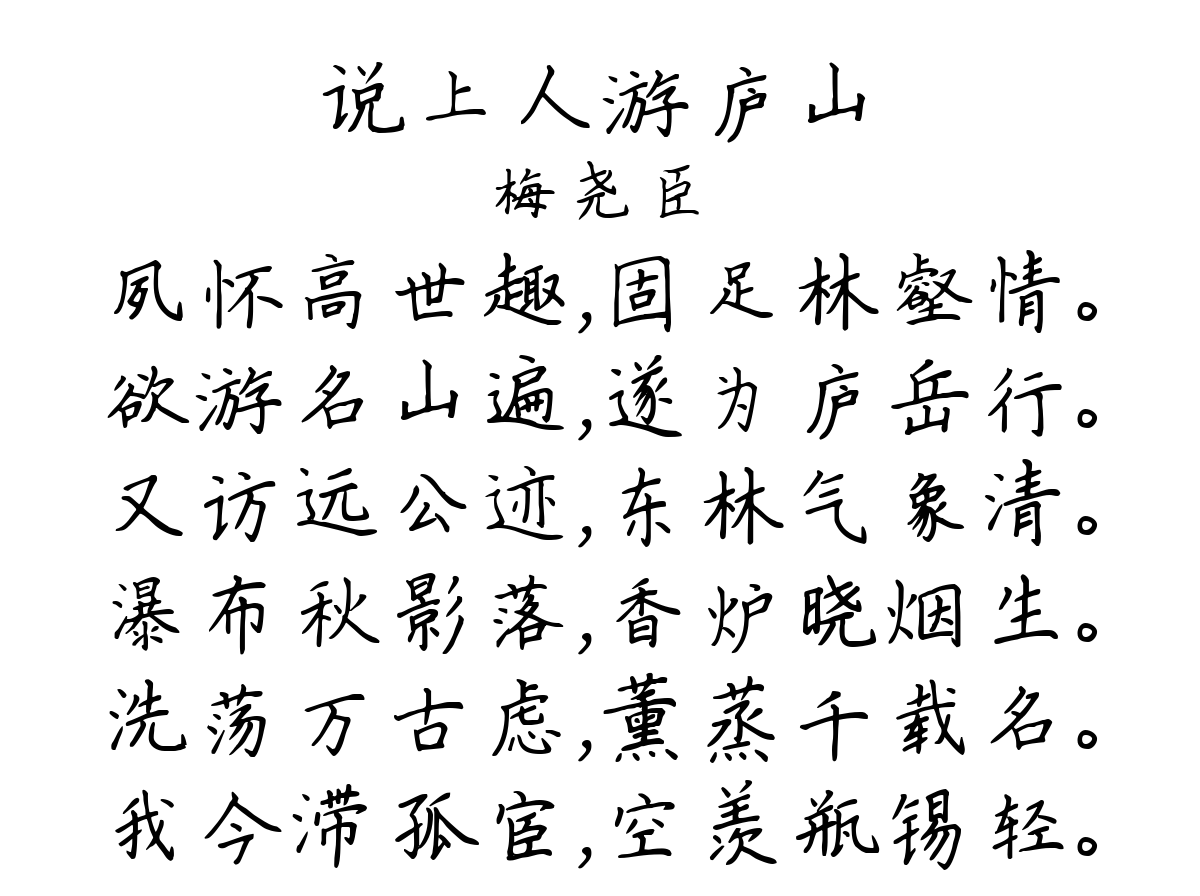 说上人游庐山
梅尧臣
夙怀高世趣,固足林壑情。
欲游名山遍,遂为庐岳行。
又访远公迹,东林气象清。
瀑布秋影落,香炉晓烟生。
洗荡万古虑,薰蒸千载名。
我今滞孤宦,空羡瓶锡轻。